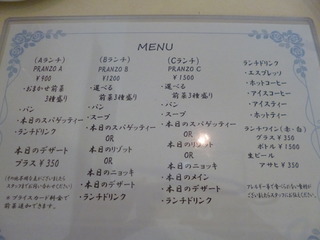 MENU
(Aランチ)
PRANZO A
¥900
・おまかせ前菜
3種盛り
・パン
・本日のスパゲッティー
・ランチドリンク
本日のデザート
プラス¥350
※プライスカード料金で
前菜追加できます。
(Bランチ)
PRANZO B
¥1200
・選べる
前菜3種盛り
・パン
・スープ
・本日のスパゲッティー
OR
本日のリゾット
OR
本日のニョッキ
・本日のデザート
・ランチドリンク
(Cランチ)
PRANZO C
¥1500
・選べる
前菜3種盛り
・パン
・スープ
・本日のスパゲッティー
OR
本日のリゾット
OR
本日のニョッキ
・本日のメイン
・本日のデザート
・ランチドリンク
ランチドリンク
・エスプレッソ
・ホットコーヒー
・アイスコーヒー
・アイスティー
・ホットティー
ランチワイン(赤・白)
グラス¥350
ボトル¥1500
生ビール
アサヒ¥350
アレルギー等で食べられない食材が
ございましたらスタッフまで